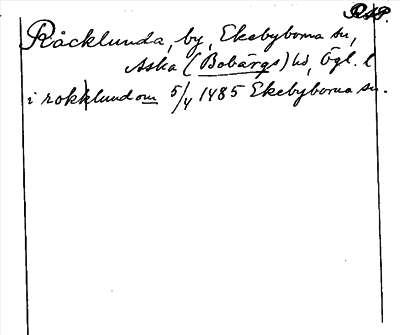 RAP.
Råcklunda, by, Ekebyborna sn,
Aska (Bobärgs) hd, Ögl. l
i rokklundom 5/4 1485 Ekebyborna sn.